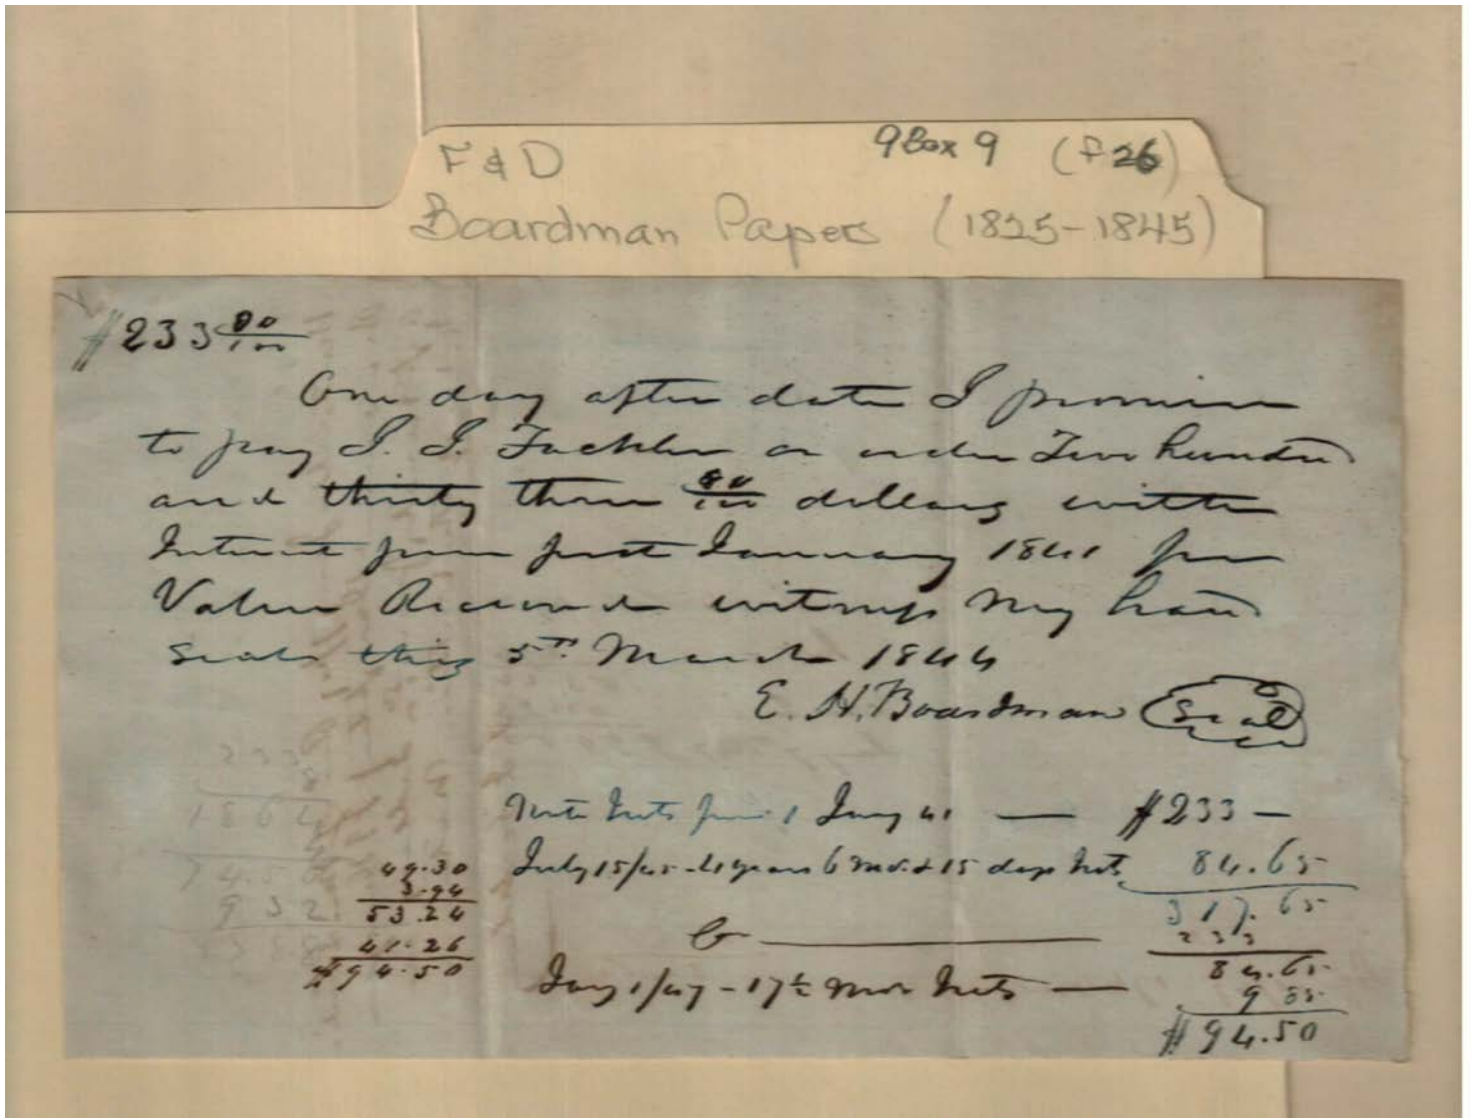 F & D 9 Box 9 (f 26)
Boardman Papers (1825-1845)
$233 80/100
One day after date I promise
to pay J. J. Fackler or order Two hundred
and thirty three 80/100 dollars with
Interest from first January 1841 for
Value Received witness my hand
Seal this 5th March 1844
E. H. Boardman Seal
Note Ints from 1 Jany 41 — $233 —
July 15/45 - 4 years 6 mos. & 15 days Ints 84.65
317.65
Cr — 233
84.65
Jany 1/47 - 17½ mos Ints — 9 85
$94.50
49.30
3.94
53.24
41.26
$94.50